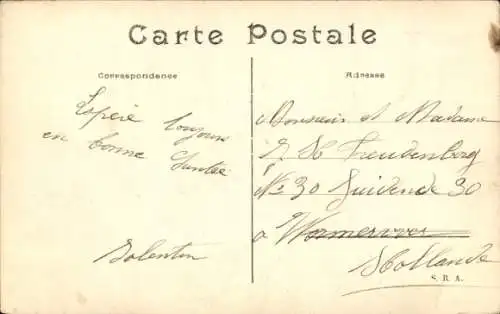 Carte Postale
Correspondance
Adresse
Espère toujours
en bonne Santée
Solentin
à Monsieur et Madame
Freudenberg
No 30 Zuidende 30
à Wormerveer
Hollande
S.B.A.